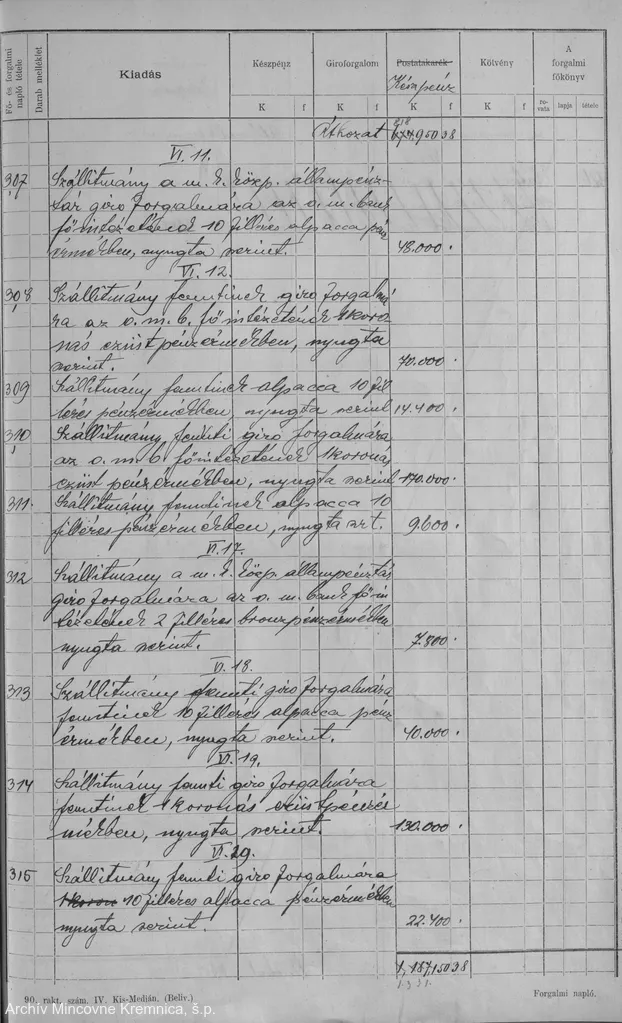 Fő- és forgalmi napló tétele
Darab melléklet
Kiadás
Készpénz
Giroforgalom
Postatakarék
Készpénz
Kötvény
A forgalmi főkönyv
K f K f K f K f rovata lapja tétele
Átkozat 674.950 38
VI. 11.
307 Szállitmány a m. k. közp. állampénz-
tár giro forgalmára az o. m. bank
főintézetének 10 filléres alpacca pénz
érmékben, nyugta szerint. 48.000 ·
VI. 12.
308 Szállitmány fenntinek giro forgalmá
ra az o. m. b. főintézetének 1 koro
nás ezüst pénzérmékben, nyugta
szerint. 70.000 ·
309 Szállitmány fenntinek alpacca 10 fil
léres pénzérmékben, nyugta szerint 14.400 ·
310 Szállitmány, fennti giro forgalmára
az o. m. b. főintézetének 1 koronás
ezüst pénzérmékben, nyugta szerint 170.000 ·
311. Szállitmány fenntinek alpacca 10
filléres pénzérmékben, nyugta szt. 9.600 ·
VI. 17.
312 Szállitmány a m. k. közp. állampénztár
giro forgalmára az o. m. bank főin
tézetének 2 filléres bronz pénzérmékben
nyugta szerint. 7.800 ·
VI. 18.
313 Szállitmány fennti giro forgalmára
fenntinek 10 filléres alpacca pénz
érmékben, nyugta szerint. 40.000 ·
VI. 19.
314 Szállitmány fennti giro forgalmára
fenntinek 1 koronás ezüst pénzér
mékben, nyugta szerint. 130.000 ·
VI. 29.
315 Szállitmány fennti giro forgalmára
1 koron 10 filléres alpacca pénzérmékben
nyugta szerint. 22.400 ·
1,187.150 38
90. rakt. szám. IV. Kis-Medián. (Beliv.)
Forgalmi napló.
Archív Mincovne Kremnica, š.p.